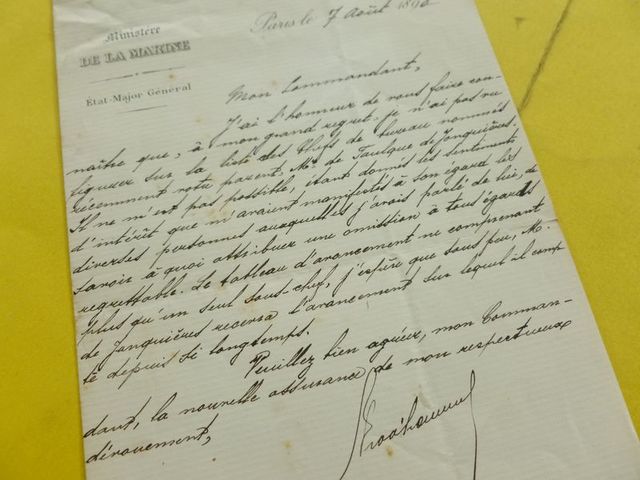 Ministère
DE LA MARINE
État-Major Général
Paris le 7 Août
Mon Commandant,
J'ai l'honneur de vous faire con-
naître que, à mon grand regret, je n'ai pas vu
figurer sur la liste des Chefs de bureau nommés
récemment votre parent, Mr. de Faulque de Jonquières.
Il ne m'est pas possible, étant donnés les sentiments
d'intérêt que m'avaient manifestés à son égard les
diverses personnes auxquelles j'avais parlé de lui, de
savoir à quoi attribuer une omission à tous égards
regrettable. Le tableau d'avancement ne comprenant
plus qu'un seul sous-chef, j'espère que sous peu, M.
de Jonquières recevra l'avancement sur lequel il comp
te depuis si longtemps.
Veuillez bien agréer, mon Comman-
dant, la nouvelle assurance de mon respectueux
dévouement,